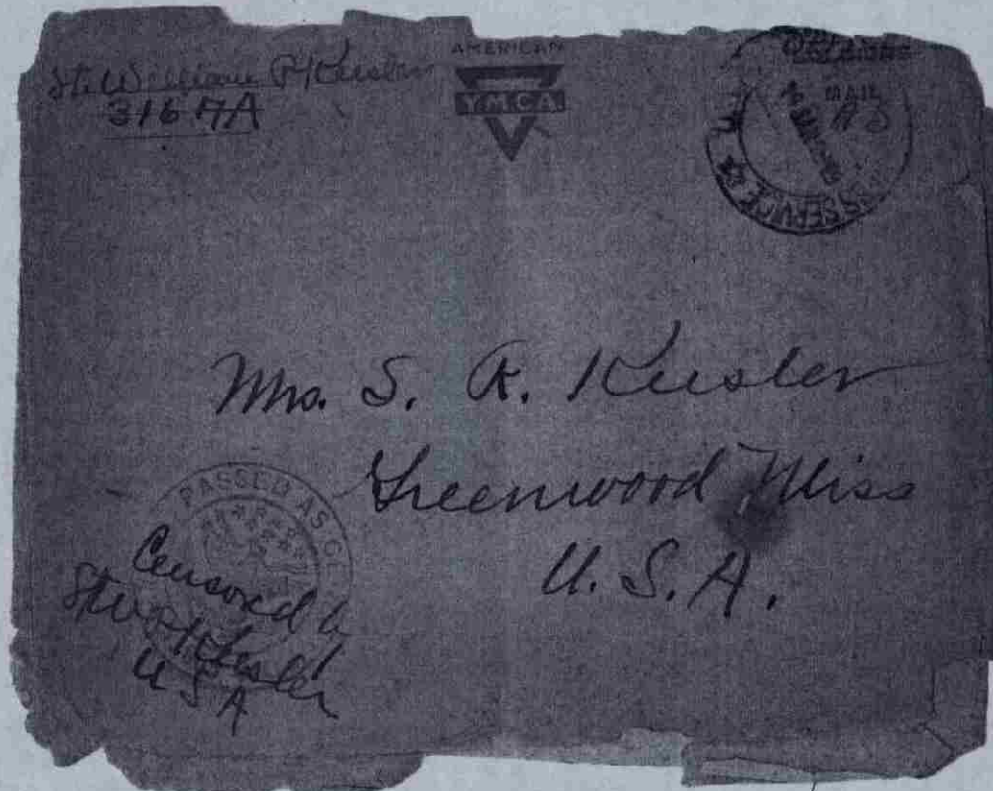 Lt. William P. Keesler
316 7A
AMERICAN
YMCA
MAIL
SERVICE
Mrs. S. R. Keesler
Greenwood, Miss
U. S. A.
PASSED AS CE
Censored by
Lt W P Keesler
U S A